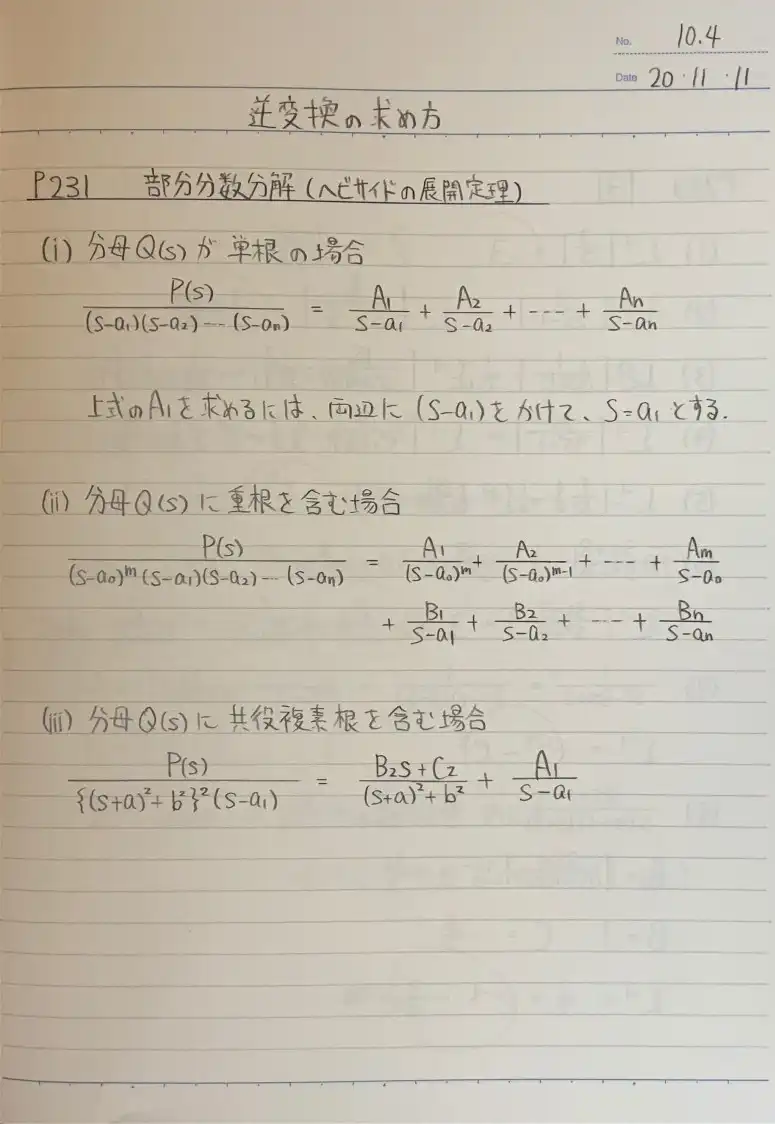 No. 10.4
Date 20・11・11
逆変換の求め方
P231 部分分数分解(ヘビサイドの展開定理)
(i) 分母Q(s)が単根の場合
P(s)/((s-a₁)(s-a₂)‥‥(s-aₙ)) = A₁/(s-a₁) + A₂/(s-a₂) + ---- + Aₙ/(s-aₙ)
上式のA₁を求めるには、両辺に(s-a₁)をかけて、s=a₁とする.
(ii) 分母Q(s)に重根を含む場合
P(s)/((s-a₀)ᵐ(s-a₁)(s-a₂)‥‥(s-aₙ)) = A₁/(s-a₀)ᵐ + A₂/(s-a₀)ᵐ⁻¹ + ---- + Aₘ/(s-a₀)
+ B₁/(s-a₁) + B₂/(s-a₂) + ---- + Bₙ/(s-aₙ)
(iii) 分母Q(s)に共役複素根を含む場合
P(s)/({(s+a)²+b²}²(s-a₁)) = (B₂s+C₂)/((s+a)²+b²) + A₁/(s-a₁)